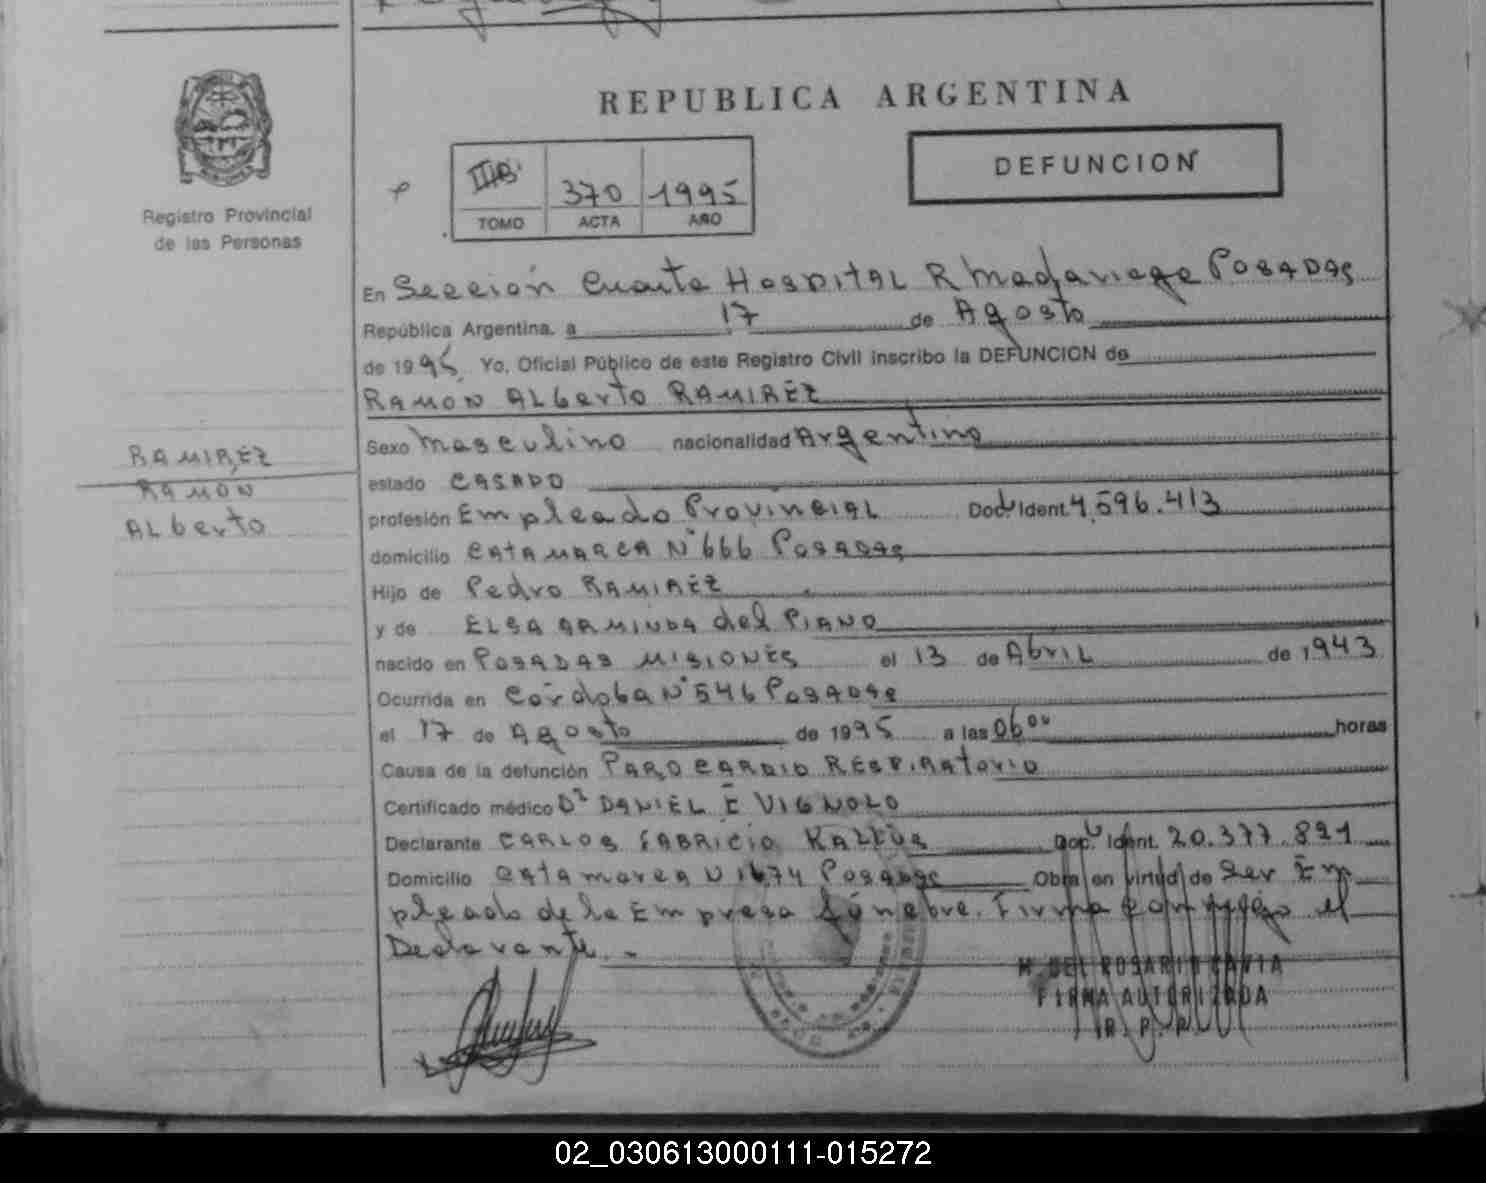 REPUBLICA ARGENTINA
DEFUNCION
Registro Provincial
de las Personas
370 1995
TOMO ACTA AÑO
En Sección Cuarta Hospital R Madariaga Posadas
República Argentina, a 17 de Agosto
de 1995. Yo, Oficial Público de este Registro Civil inscribo la DEFUNCION de
RAMON ALberto RAMIREZ
RAMIREZ
RAMON
ALberto
Sexo Masculino nacionalidad Argentino
estado CASADO
profesión Empleado Provincial Doc. Ident. 4.596.413
domicilio CATAMARCA N° 666 Posadas
Hijo de Pedro RAMIREZ
y de ELSA ARMINDA del PIANO
nacido en POSADAS MISIONES el 13 de Abril de 1943
Ocurrida en Córdoba N° 546 Posadas
el 17 de Agosto de 1995 a las 06 00 horas
Causa de la defunción PARO CARDIO RESPIRAtorio
Certificado médico Dr DANIEL E VIGNOLO
Declarante CARLOS FABRICIO Doc. Ident. 20.377.821
Domicilio Catamarca Posadas Obra en virtud de Ser Em
pleado de la Empresa fúnebre. Firma conmigo el
Declarante. -
M. DEL ROSARIO CAVIA
FIRMA AUTORIZADA
R. P. P.
02_030613000111-015272